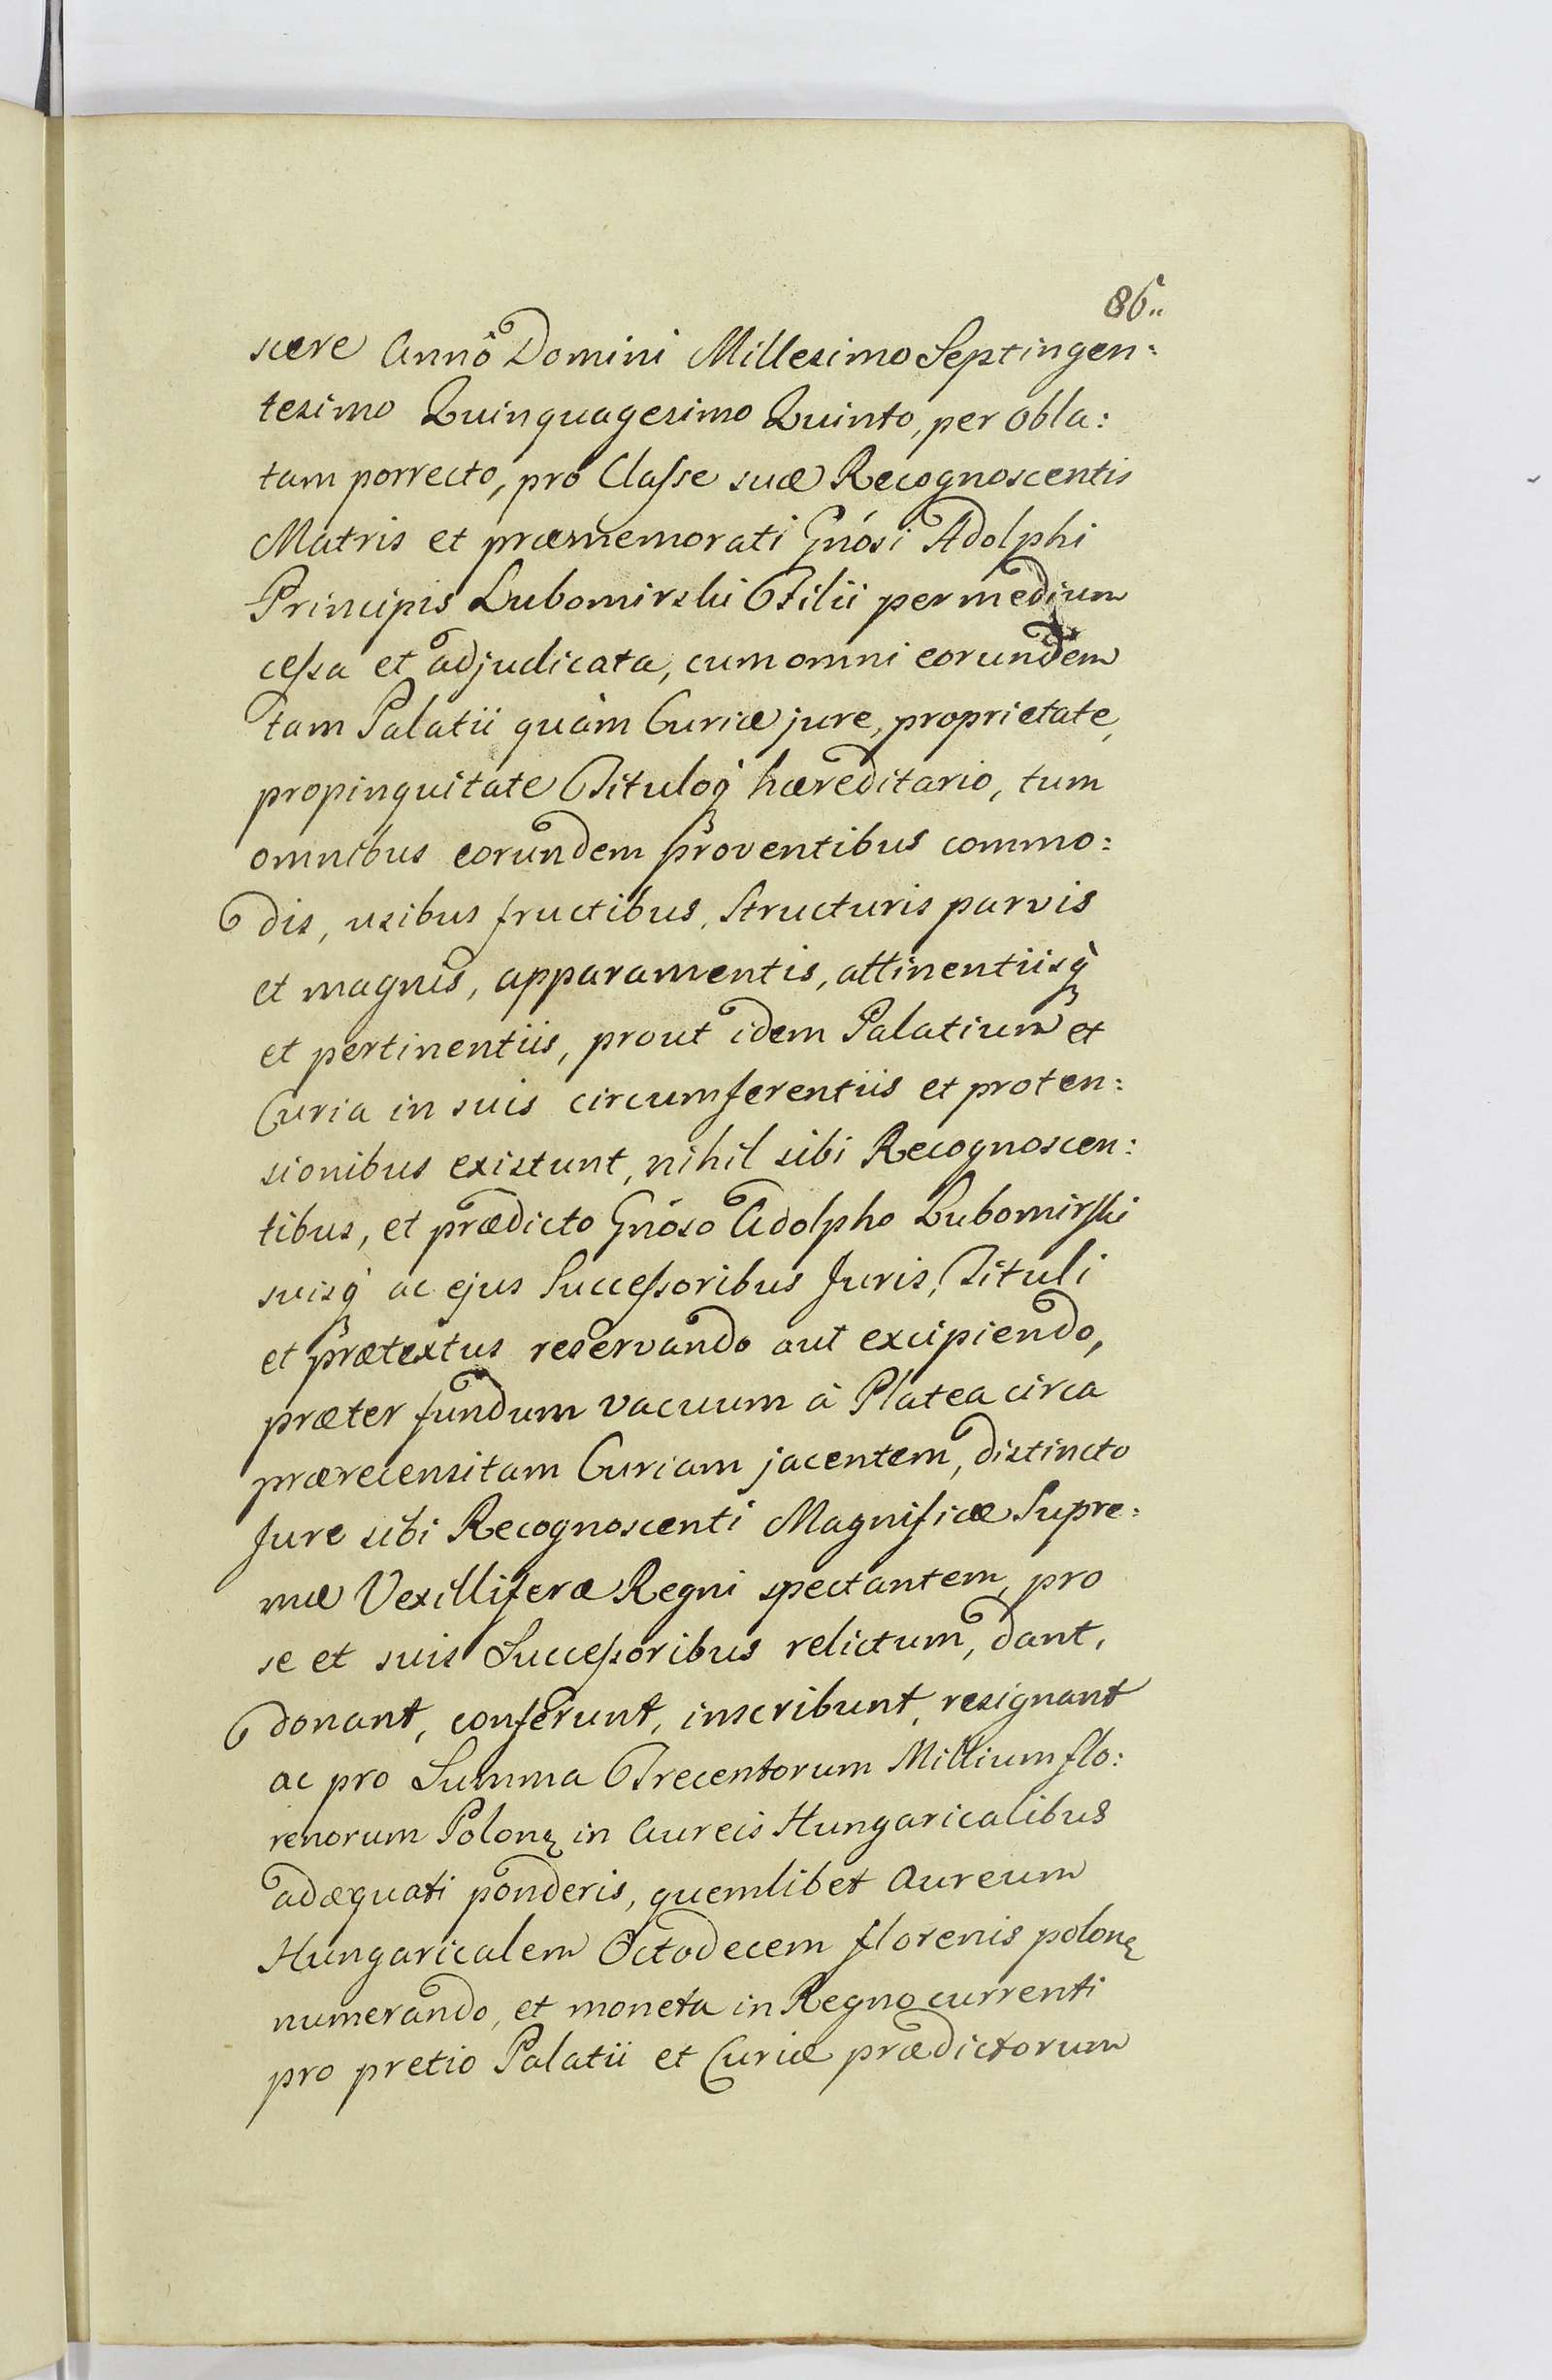 86.
scere Annô Domini Millesimo Septingen:
tesimo Quinquagesimo Quinto, per obla:
tam porrecto, pro Classe suæ Recognoscentis
Matris et præmemorati Gnósi Adolphi
Principis Lubomirski Filii per medium
cessa et adjudicata, cum omni eorundem
tam Palatii quàm Curiæ jure, proprietate,
propinquitate Tituloq́ hæreditario, tum
omnibus eorundem proventibus commo:
dis, usibus fructibus, structuris parvis
et magnis, apparamentis, attinentiisq́
et pertinentiis, prout idem Palatium et
Curia in suis circumferentiis et proten:
sionibus existunt, nihil sibi Recognoscen:
tibus, et prædicto Gnóso Adolpho Lubomirski
suisq́ ac ejus Successoribus Juris, Tituli
et prætextus reservando aut excipiendo,
præter fundum vacuum à Platea circa
prærecensitam Curiam jacentem, distincto
Jure sibi Recognoscenti Magnificæ Supre:
mæ Vexilliferæ Regni spectantem, pro
se et suis Successoribus relictum, dant,
donant, conferunt, inscribunt, resignant
ac pro Summa Trecentorum Millium flo:
renorum Polonę in Aureis Hungaricalibus
adæquati ponderis, quemlibet Aureum
Hungaricalem Octodecem florenis polonę
numerando, et moneta in Regno currenti
pro pretio Palatii et Curiæ prædictorum